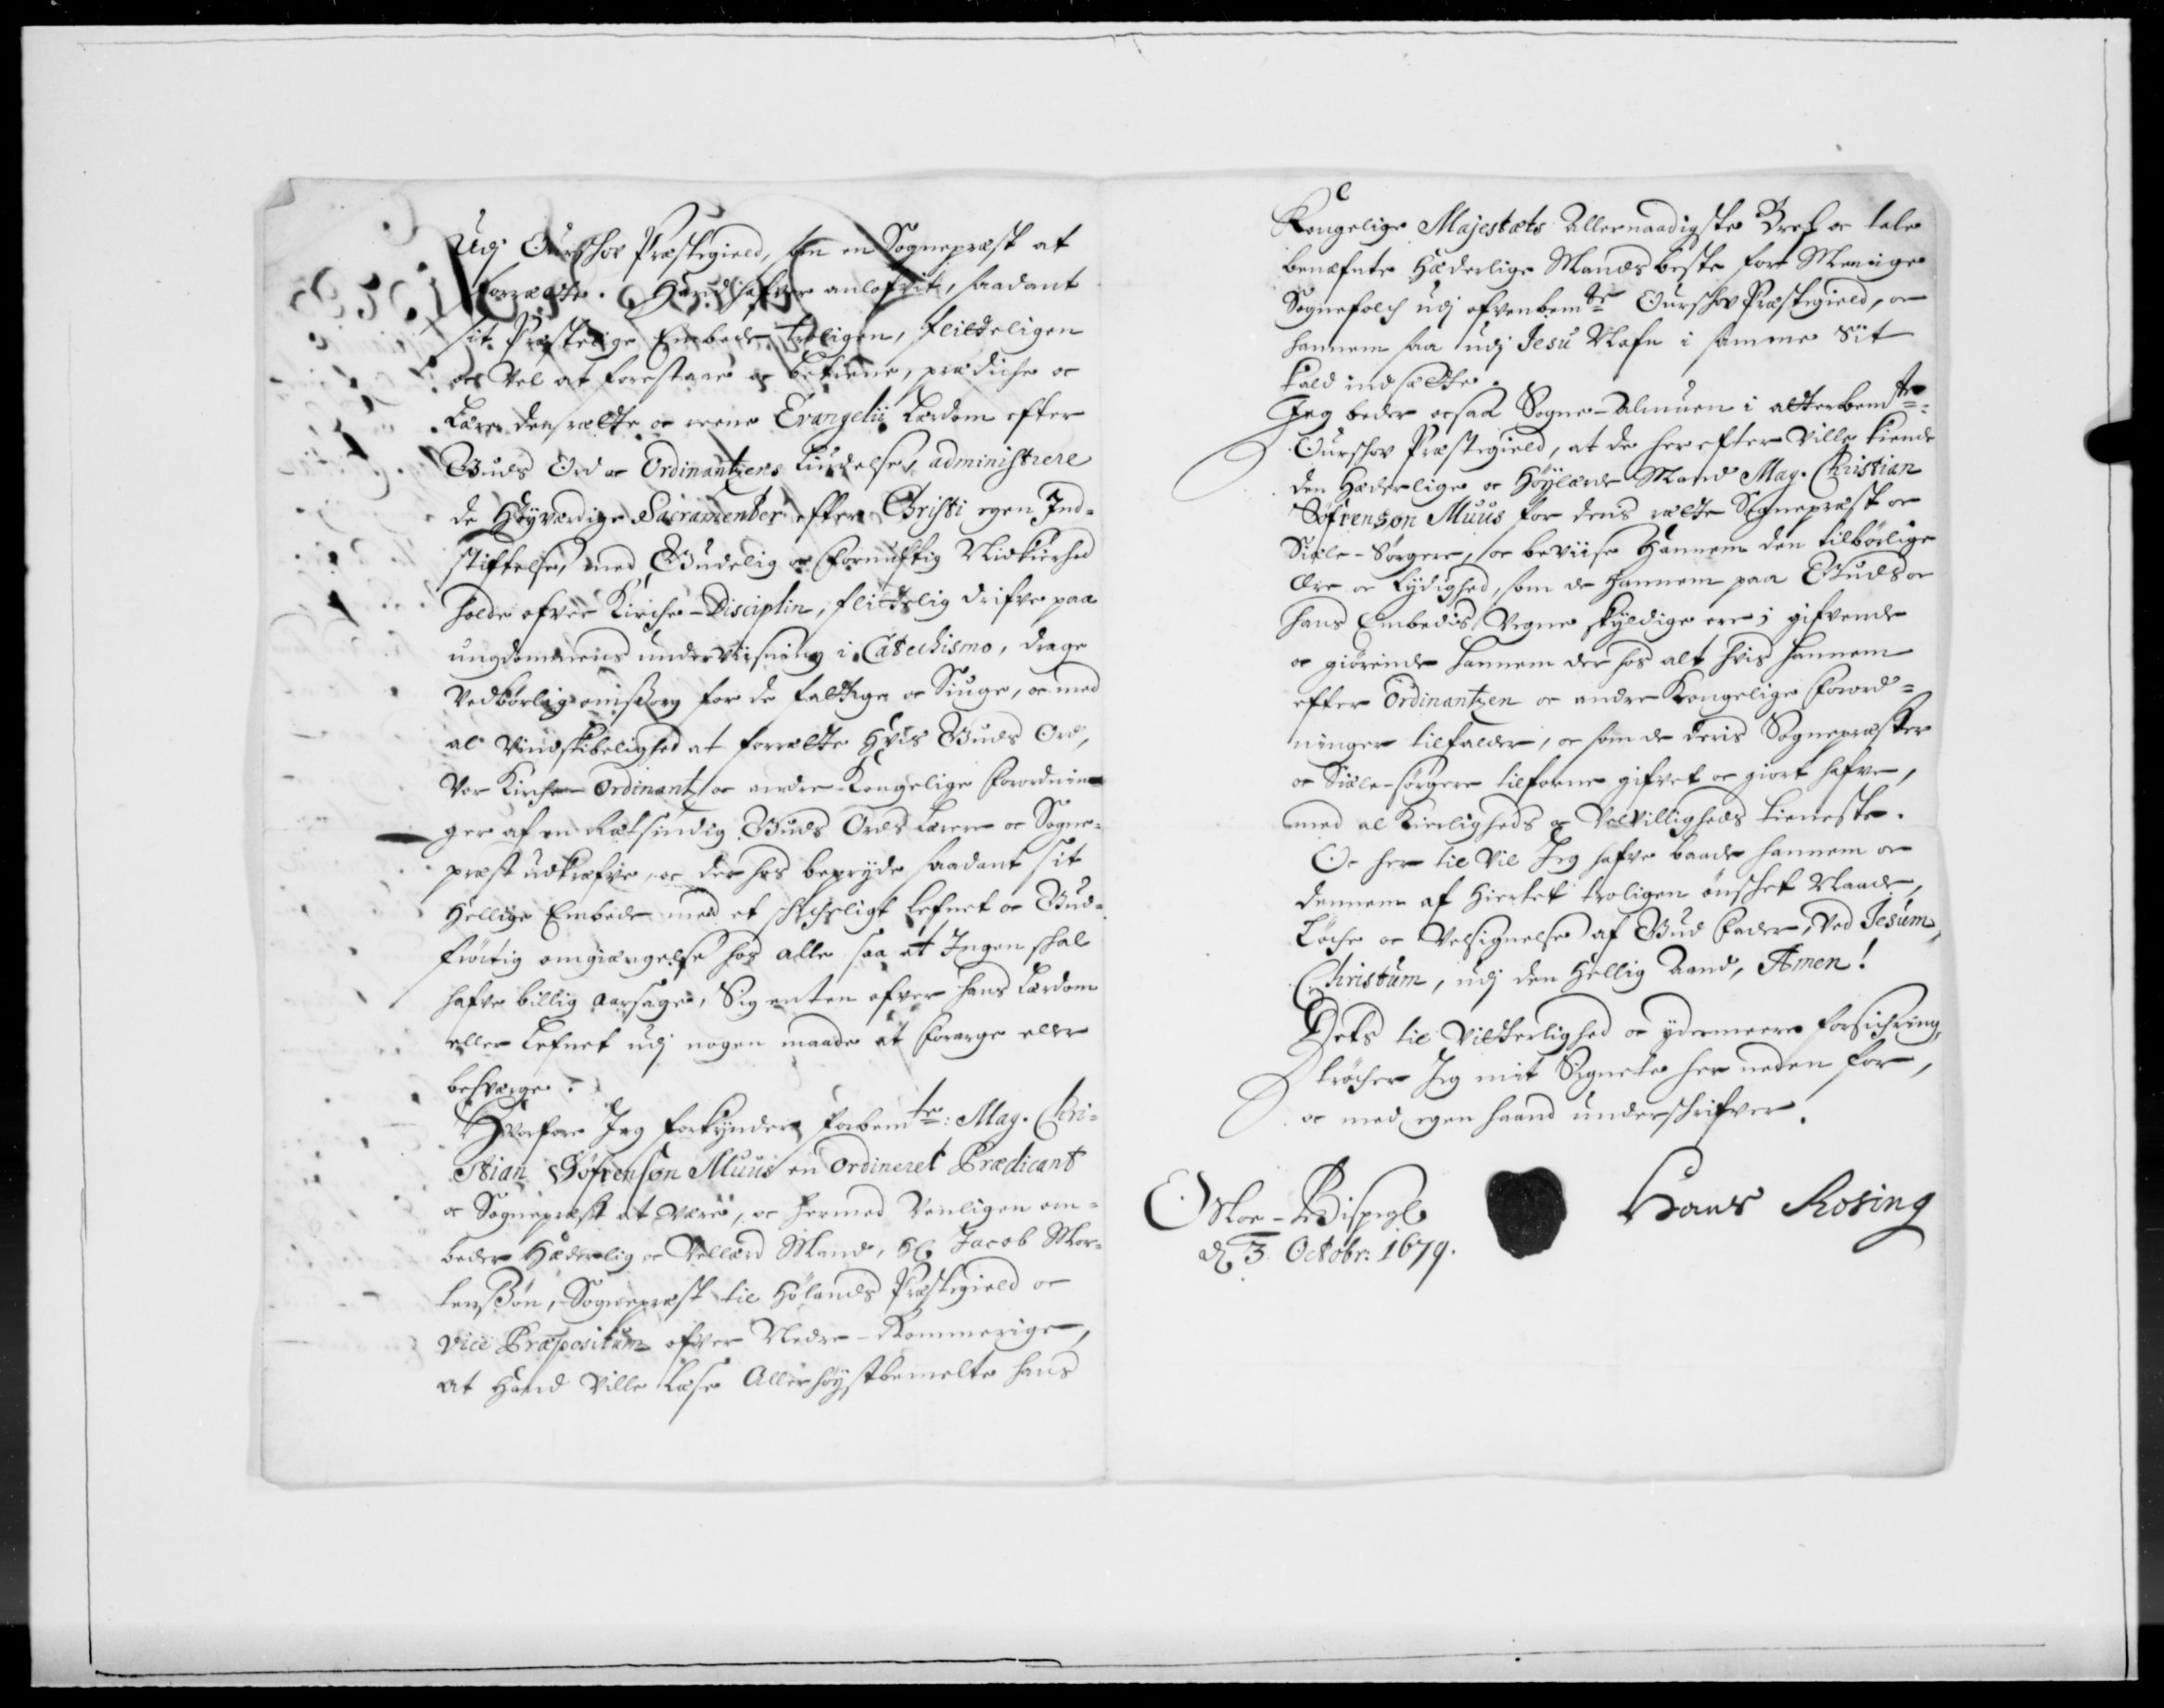 Udj Ourschov Præstegield, som en Sognepræst at
forrætte. Hand hafver anlofvit, saadant
sit Præstelige Embede troligen, flitteligen
oc Vel at forestaae oc betiene, prædiche oc
Lære den rætte oc reene Evangelii Lærdom efter
Guds Ord oc Ordinantzens liudelse, administrere
de Høyværdige Sacramenter efter Christi egen Ind-
stiftelse, med Gudelig oc Fornuftig Nidkierhed
holde ofver Kirche-Disciplin, flittelig drifve paa
ungdommens underviisning i Catechismo, drage
Vedbørlig omsorg for de fattige oc Siuge, oc med
al Vindskibelighed at forrætte hvis Guds Ord,
Vor Kirche-Ordinantz oc andre Kongelige Forordnin-
ger af en Rætsindig Guds Ords Lærere oc Sogne-
præst udkræfve, oc der hos bepryde saadant sit
Hellige Embede med et schicheligt Lefnet oc Gud-
frøctig omgiængelse hos alle saa at Ingen skal
hafve billig Aarsage, Sig enten ofver hans Lærdom
eller Lefnet udj nogen maade at forarge eller
besværge.
Hvorfore Jeg forkynder forbemte: Mag. Chri-
stian Søfrenson Muus en Ordineret Prædicant
oc Sognepræst at være, oc hermed Venligen om-
beder Hæderlig oc Vellærd Mand, Hr. Jacob Mor-
tenssøn, Sognepræst til Hølands Præstegield oc
Vice Præpositum ofver Nedre-Rommerige,
at Hand Ville Læse Allerhøystbemelte hans
Kongelige Majestæts Allernaadigste Bref oc tale
benæfnte Hæderlige Mands beste for Menige
Sognefolch udj ofvenbemte Ourschov Præstegield, oc
hannem saa udj Jesu Nafn i samme Sit
kald indsætte.
Jeg beder ocsaa Sogne-Almuen i atterbemte
Ourschov Præstegield, at de her efter Ville kiende
den Hæderlige oc Høylærde Mand Mag. Christian
Søfrenson Muus for dens rætte Sognepræst oc
Siæle-Sørgere, oc beviise Hannem den tilbørlige
Ære oc Lydighed, som de hannem paa Guds oc
hans Embedis Vegne skyldige ere; gifvende
oc giørende hannem der hos alt hvis hannem
efter Ordinantzen oc andre Kongelige Forord-
ninger tilfalder, oc som de deris Sognepræster
oc Siæle-sørgere tilforne gifvet oc giort hafve,
med al Kierligheds oc Velvilligheds tieneste.
Oc her til Vil Jeg hafve baade hannem oc
dennem af Hiertet troligen ønschet Naade,
Løche oc Velsignelse af Gud Fader, Ved Jesum
Christum, udj den Hellig Aand, Amen!
Dets til Vitterlighed oc ydermeere forsichring,
trøcher Jeg mit Signete her neden for,
oc med egen haand underschrifver.
Hans Rosing
d. 3. Octobr. 1679.